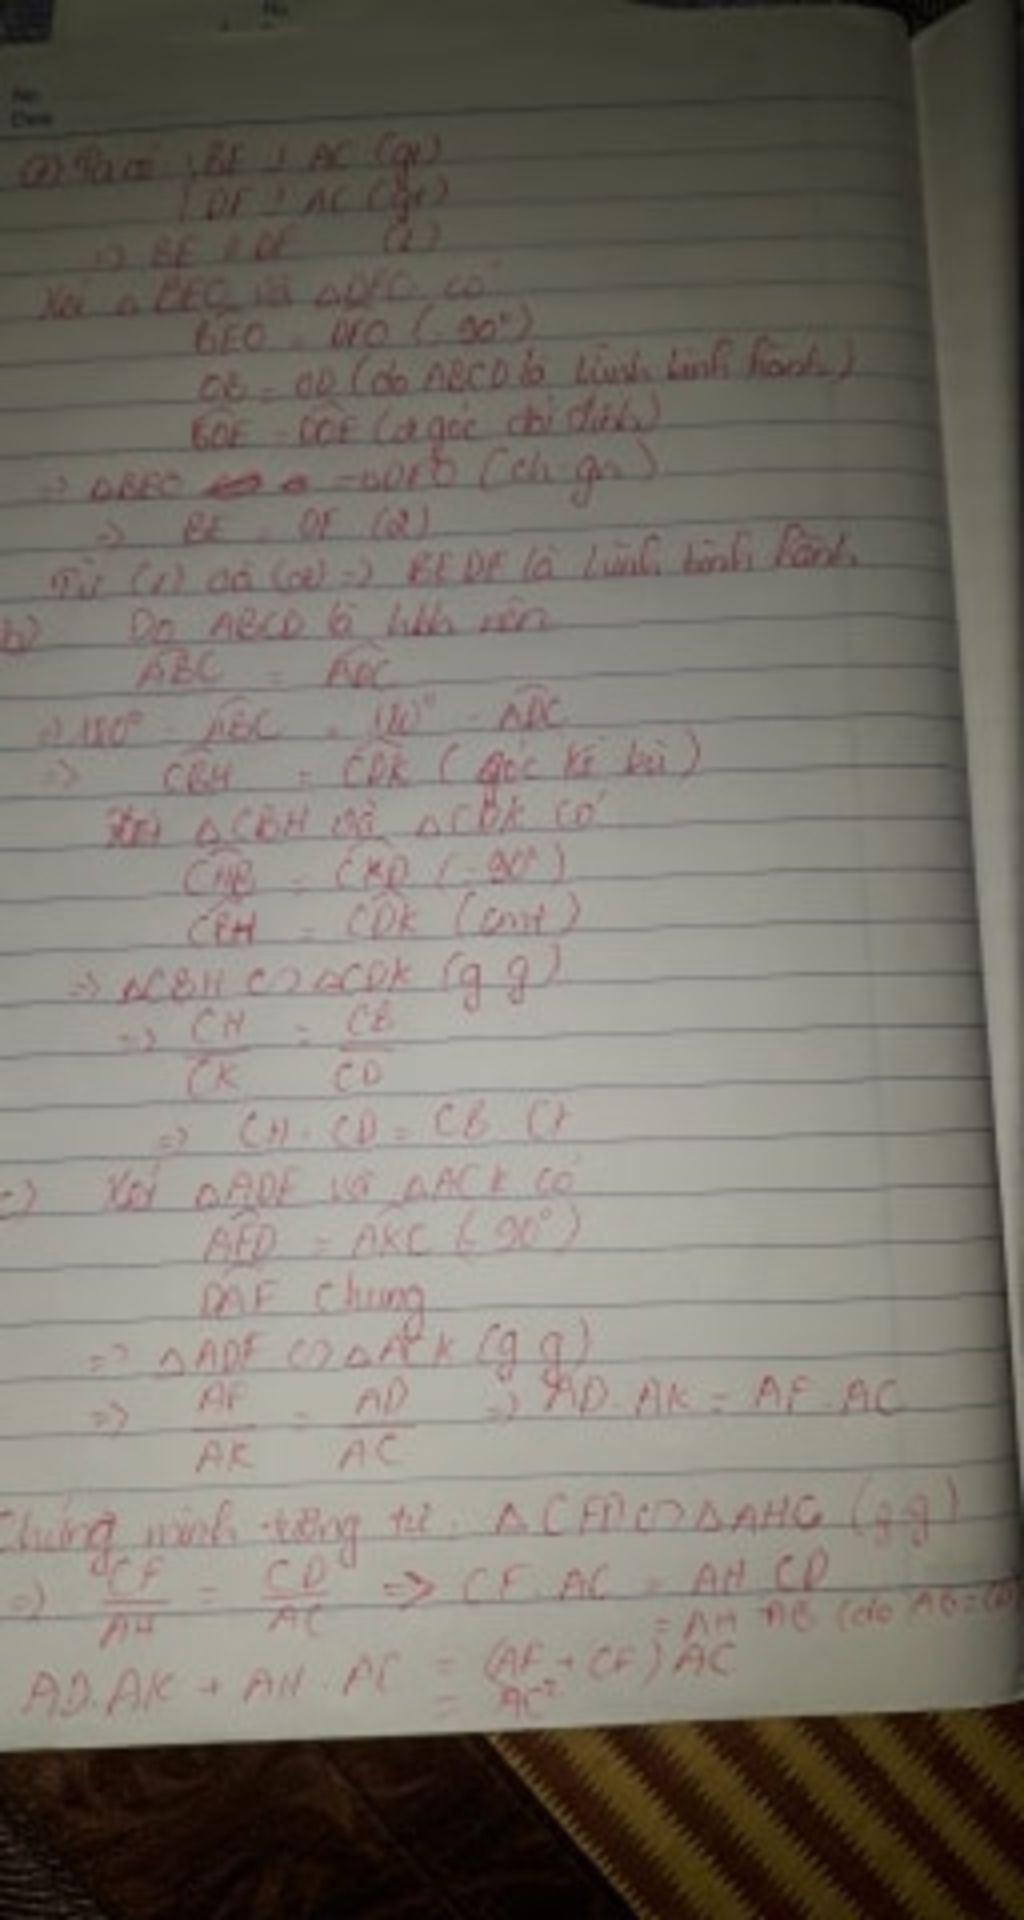 No.
Date
a) Ta có: BE ⊥ AC (gt)
DF ⊥ AC (gt)
=> BE // DF (1)
Xét △BEO và △DFO có
BEO = DFO (=90°)
OB = OD (do ABCD là hình bình hành)
BOE = DOF (2 góc đối đỉnh)
=> △BEO = △DFO (ch-gn)
=> BE = DF (2)
Từ (1) và (2) => BEDF là hình bình hành
b) Do ABCD là hbh nên
ABC = ADC
=> 180° - ABC = 180° - ADC
=> CBH = CDK (góc kề bù)
Xét △CBH và △CDK có
CHB = CKD (=90°)
CBH = CDK (cmt)
=> △CBH ∽ △CDK (g.g)
=> CH/CK = CB/CD
=> CH.CD = CB.CK
c) Xét △ADF và △ACK có
AFD = AKC (=90°)
DAF chung
=> △ADF ∽ △ACK (g.g)
=> AF/AK = AD/AC => AD.AK = AF.AC
Chứng minh tương tự: △CFD ∽ △AHC (g.g)
=> CF/AH = CD/AC => CF.AC = AH.CD
= AH.AB (do AB=CD)
AD.AK + AH.AC = (AF + CF) AC
= AC²